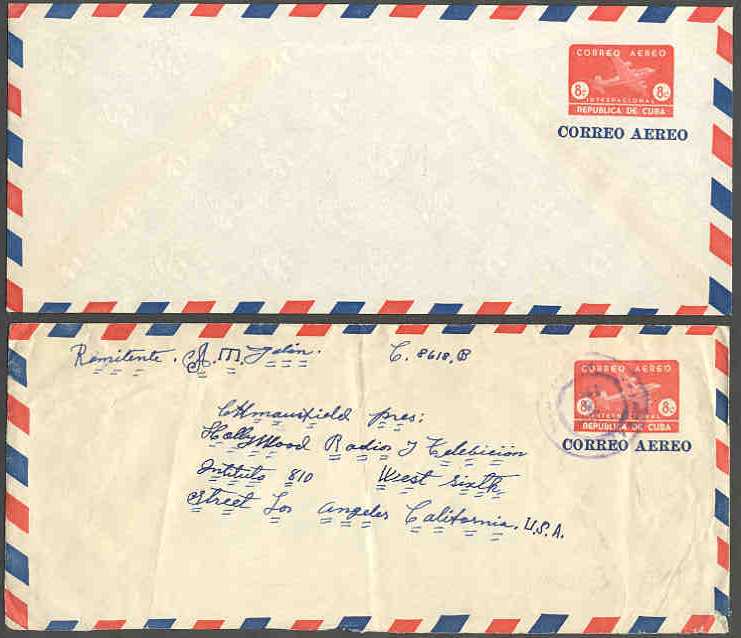 CORREO AEREO
8c 8c
INTERNACIONAL
REPUBLICA DE CUBA
CORREO AEREO
Remitente. A. M. C. 8618, B
CORREO AEREO
8c 8c
INTERNACIONAL
REPUBLICA DE CUBA
CORREO AEREO
CHmansfield pres:
HollyWood Radio y Telebicion
Intituto 810 West Sixth
Street Los Angeles California. U.S.A.